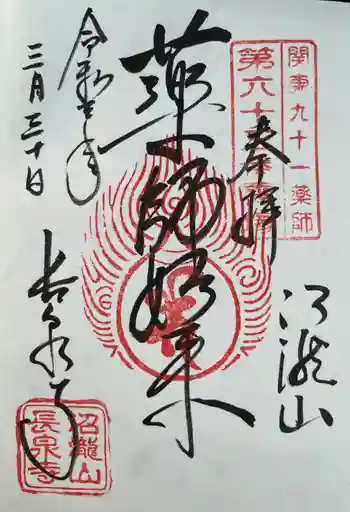 関東九十一薬師
第六十
奉拝
沼瀧山
薬師如来
長泉寺
令和
三月三十日
沼瀧山
長泉寺